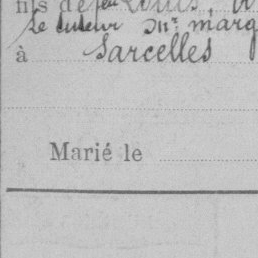 fils de feu Louis,
Le tuteur Mr. marg
à Sarcelles
Marié le